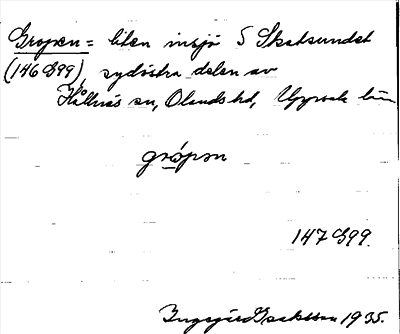 Gropen = liten insjö S Skatsundet
(146 G99), sydöstra delen av
Hållnäs sn, Olands hd, Uppsala län
grópən
147 G99.
Ingegärd Isaksson 1935.